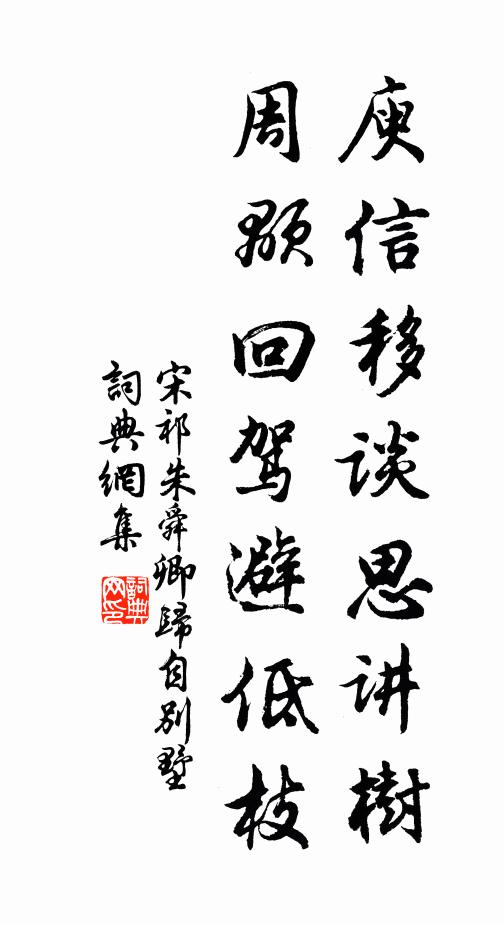 庾信移谈思讲樹
周顒回驾避低枝
宋祁朱舜卿歸自別墅
詞典網集
詞典網印